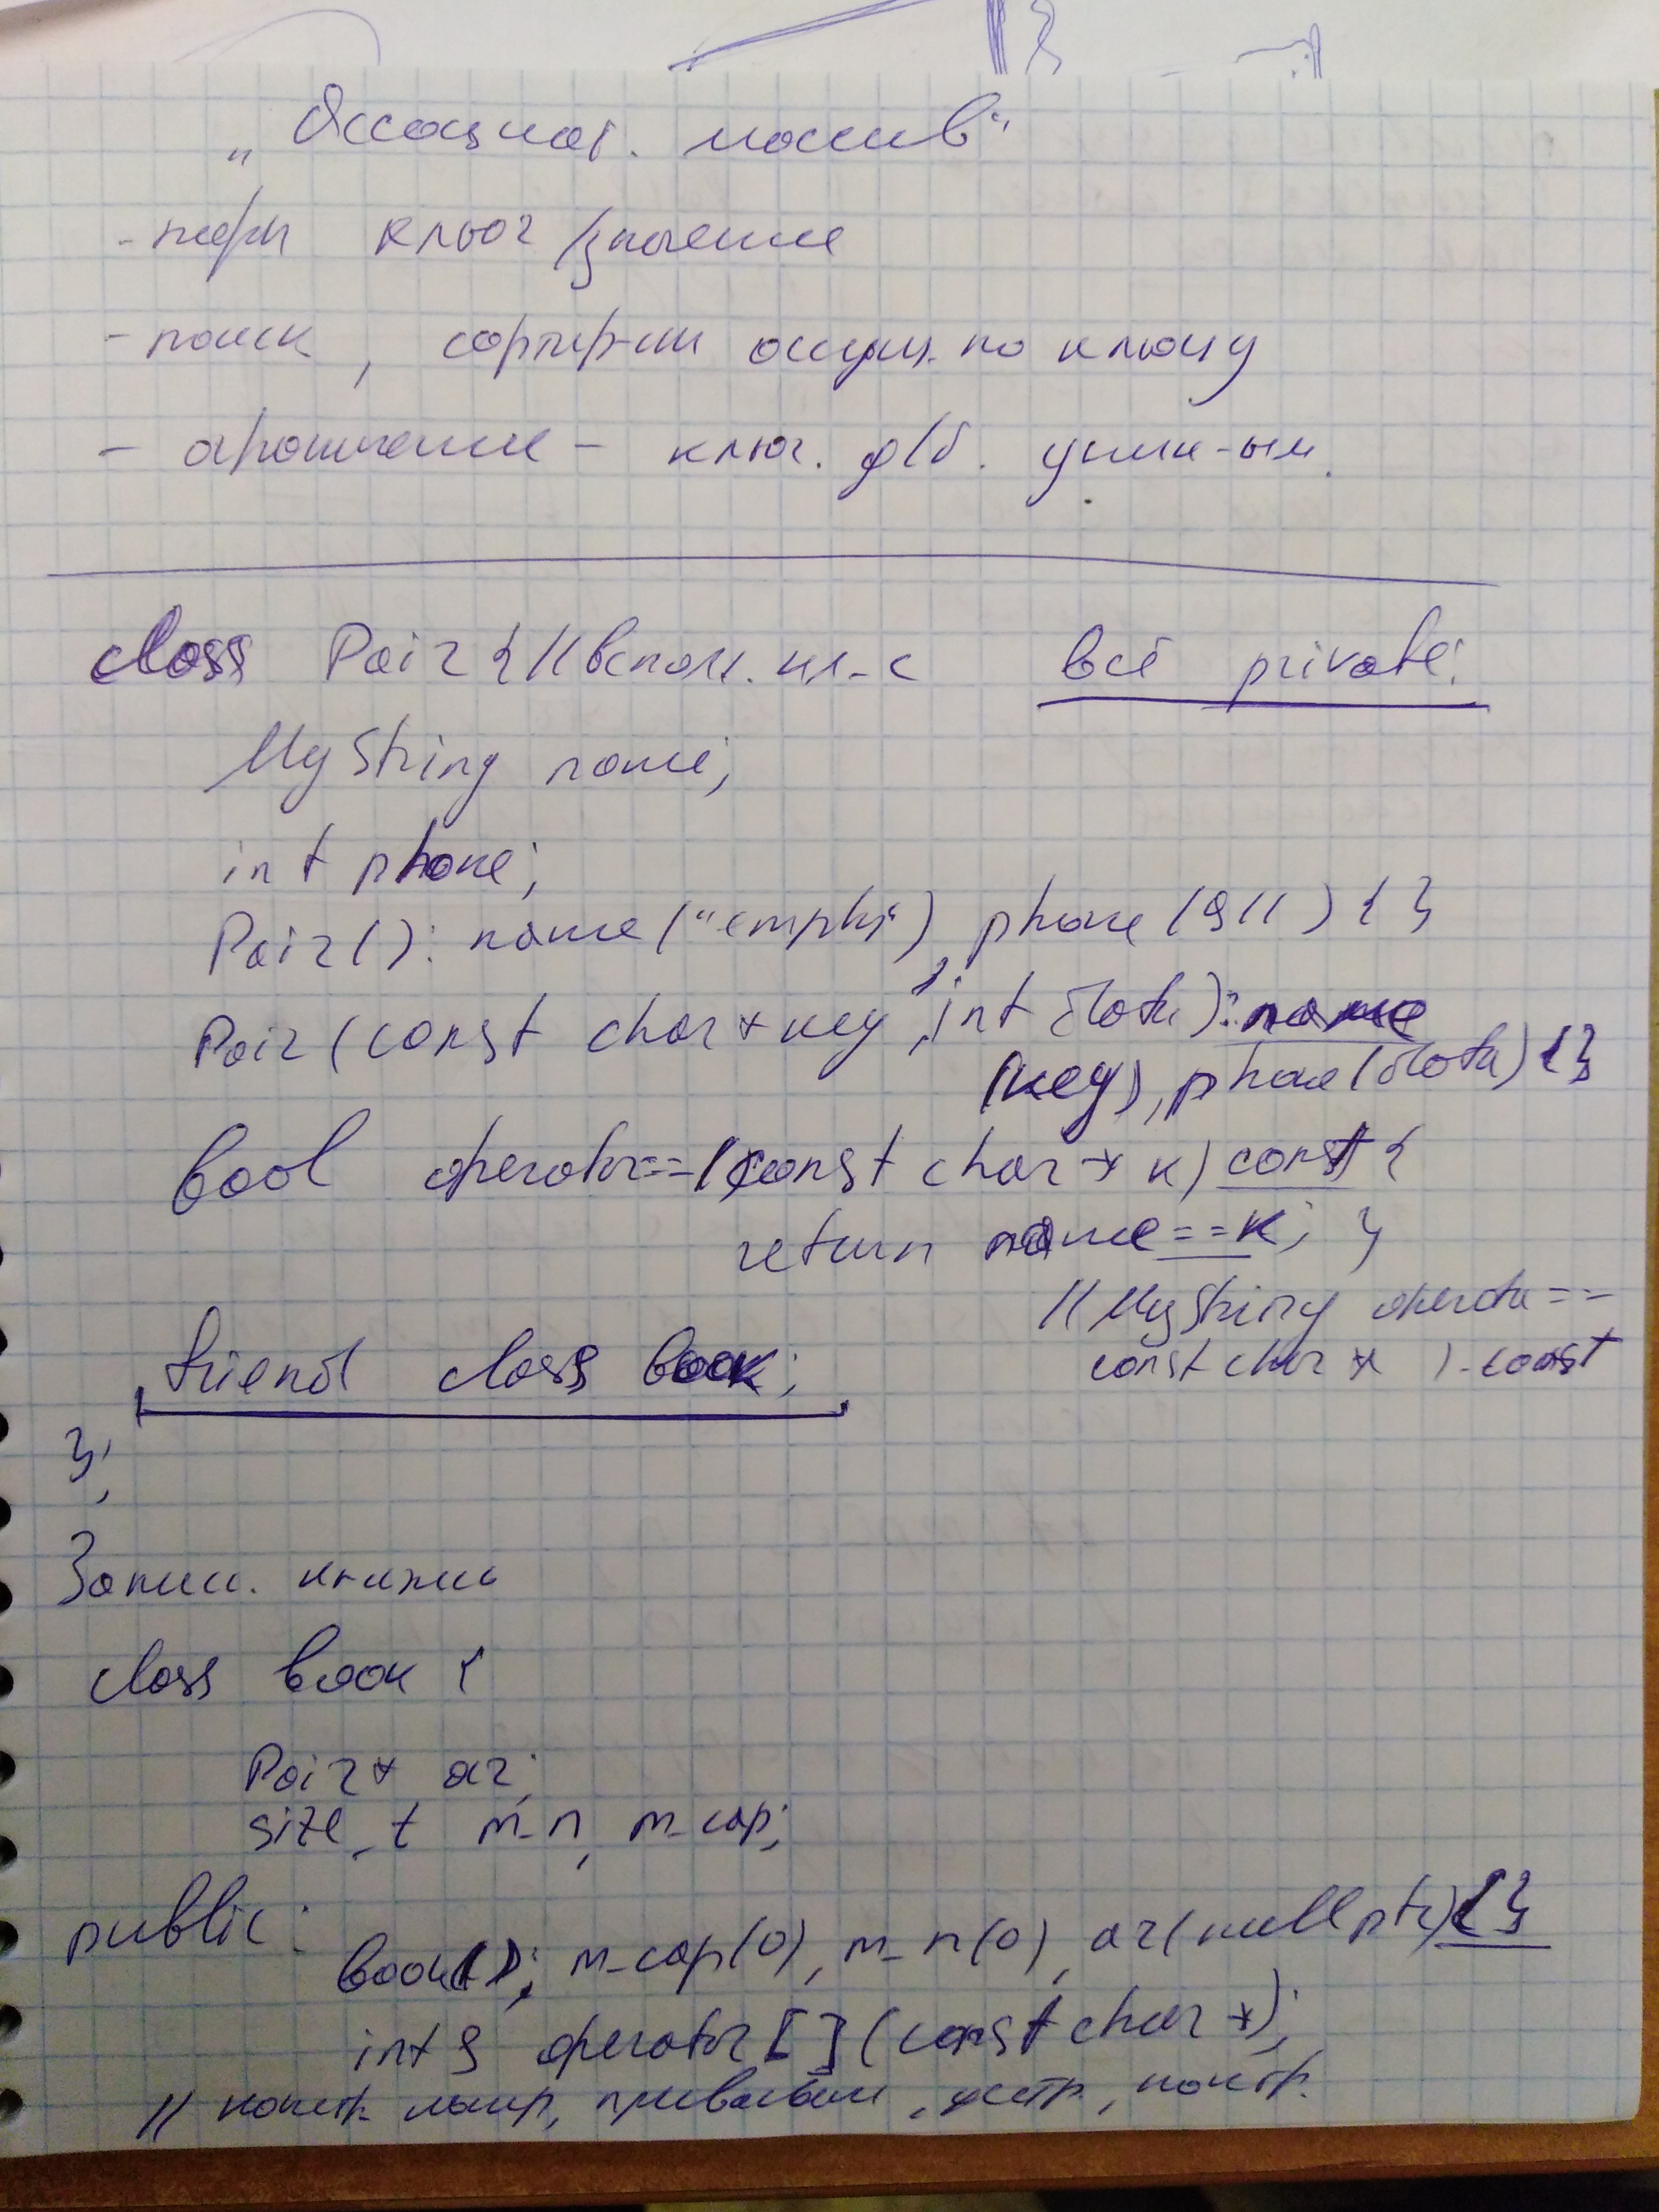 „Ассоциат. массив“
- пары ключ/значение
- поиск, сортир-ки осущ. по ключу
- ограничение - ключ. д/б. уник-ым.
class Pair { // вспом. кл-с всё private:
MyString name;
int phone;
Pair(): name("empty"), phone(911) { }
Pair(const char* key, int data): name
(key), phone(data) {}
bool operator==(const char* k) const {
return name==k; }
// MyString operator ==
const char * ) const
friend class book;
};
Запис. книжка
class book {
Pair* ar;
size_t m_n, m_cap;
public:
book(): m_cap(0), m_n(0), ar(nullptr) {}
int& operator[](const char*);
// констр. копир, присваивание, дестр,